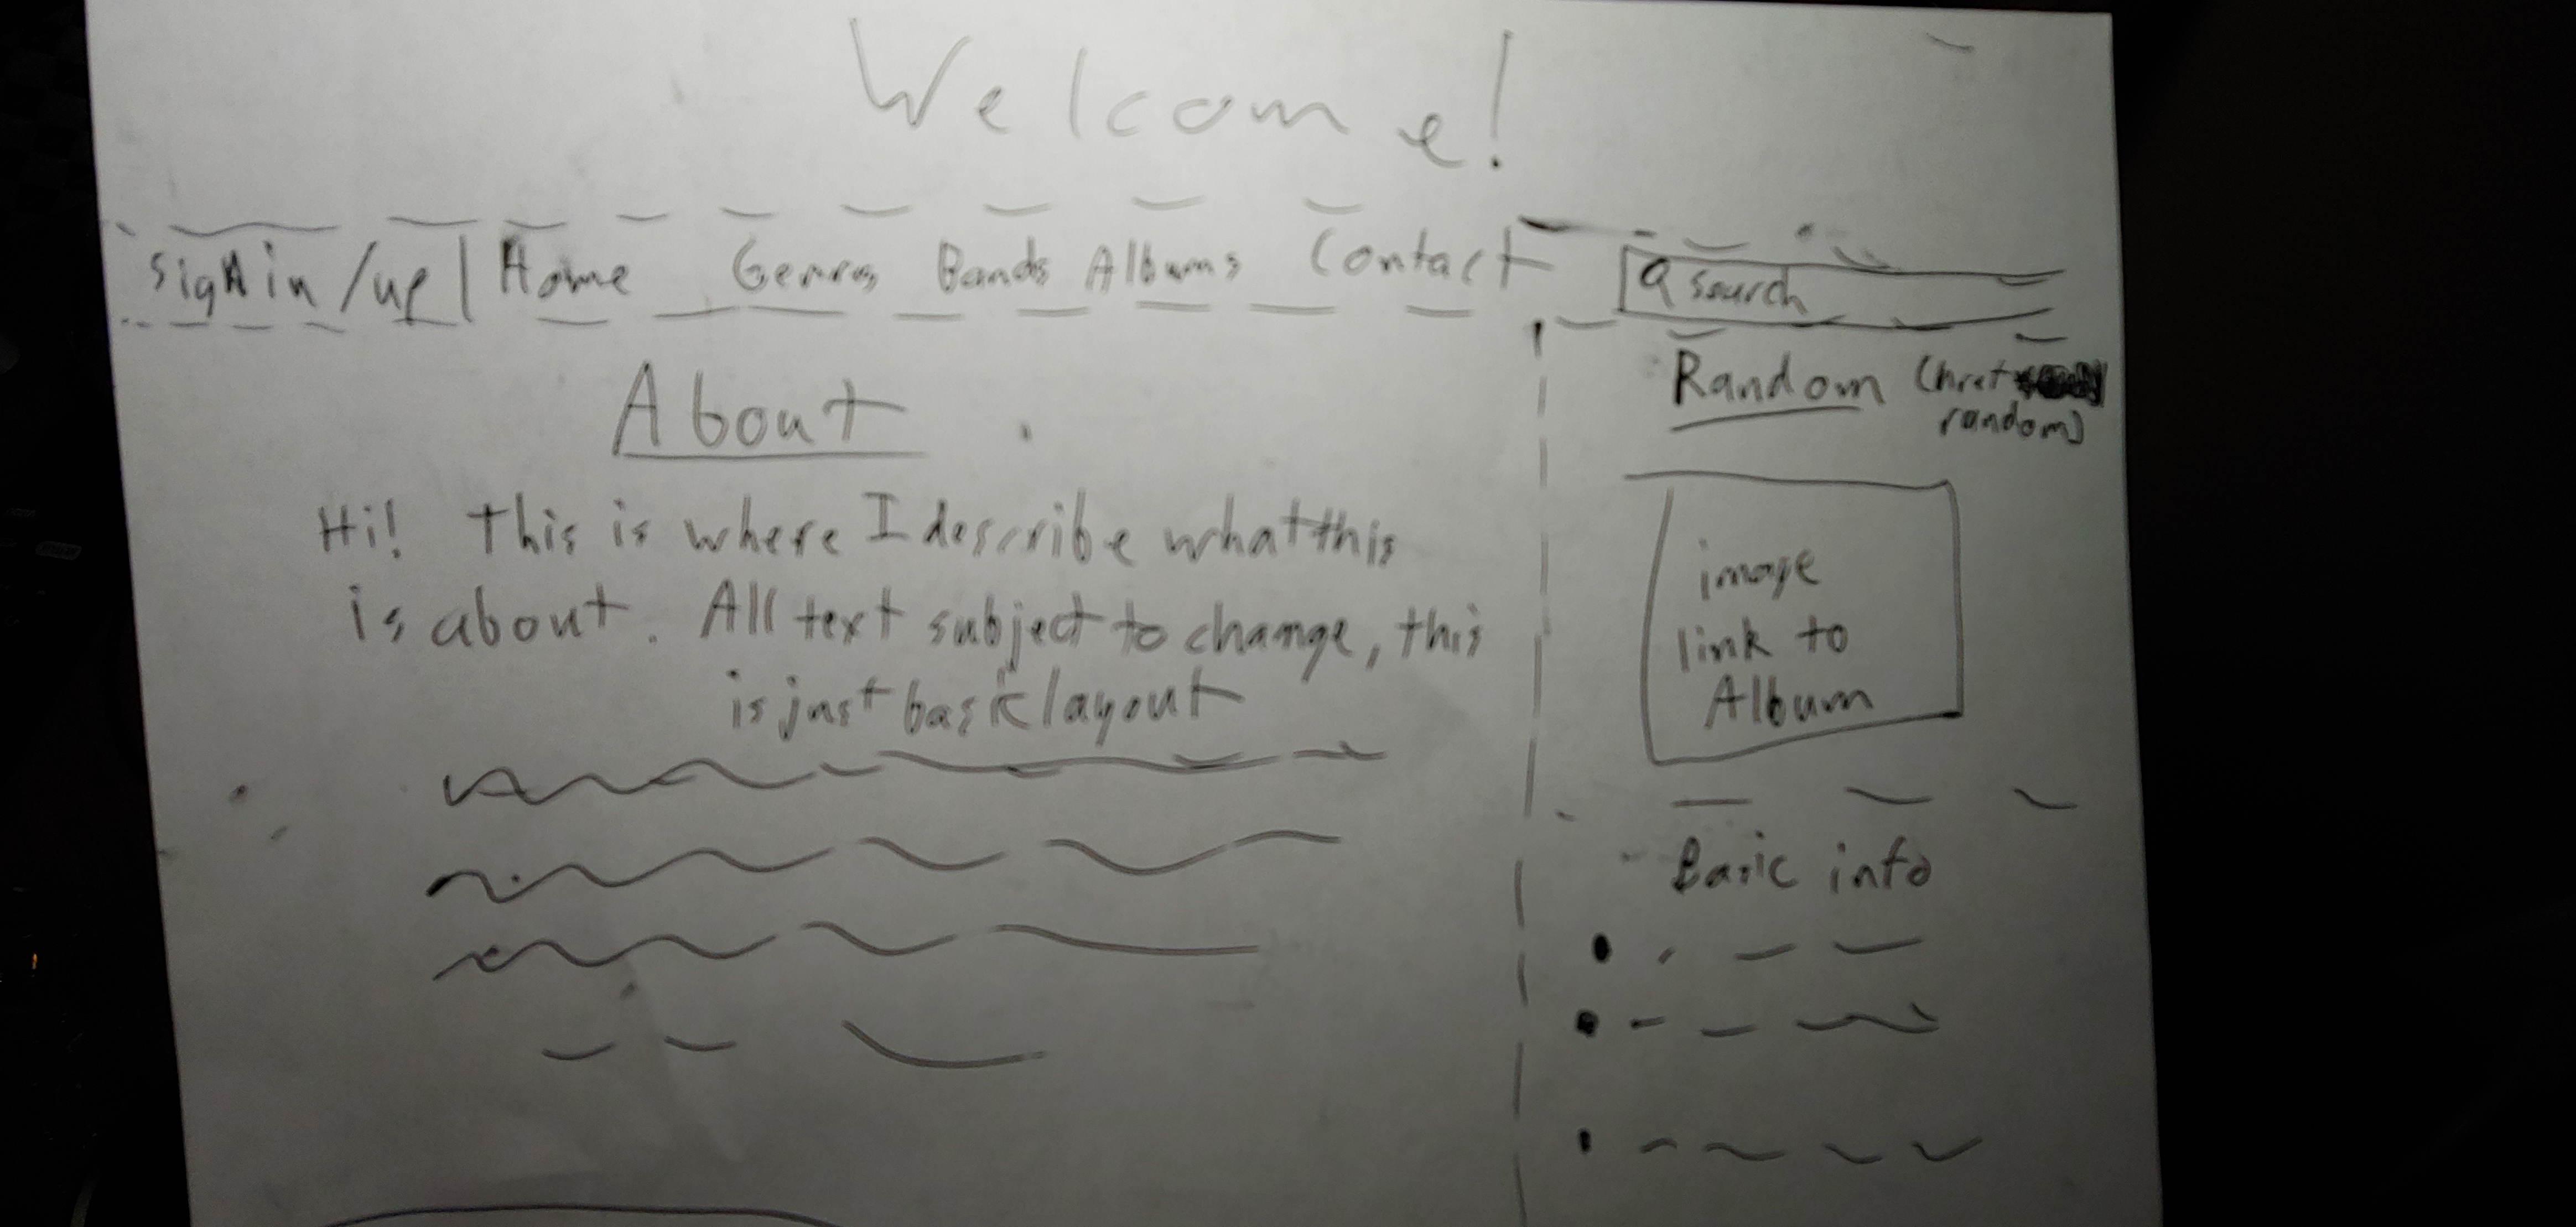 Welcome!
Sign in /up | Home Genres Bands Albums Contact
search
About
Hi! This is where I describe what this
is about. All text subject to change, this
is just basic layout
Random
random)
image
link to
Album
Basic info